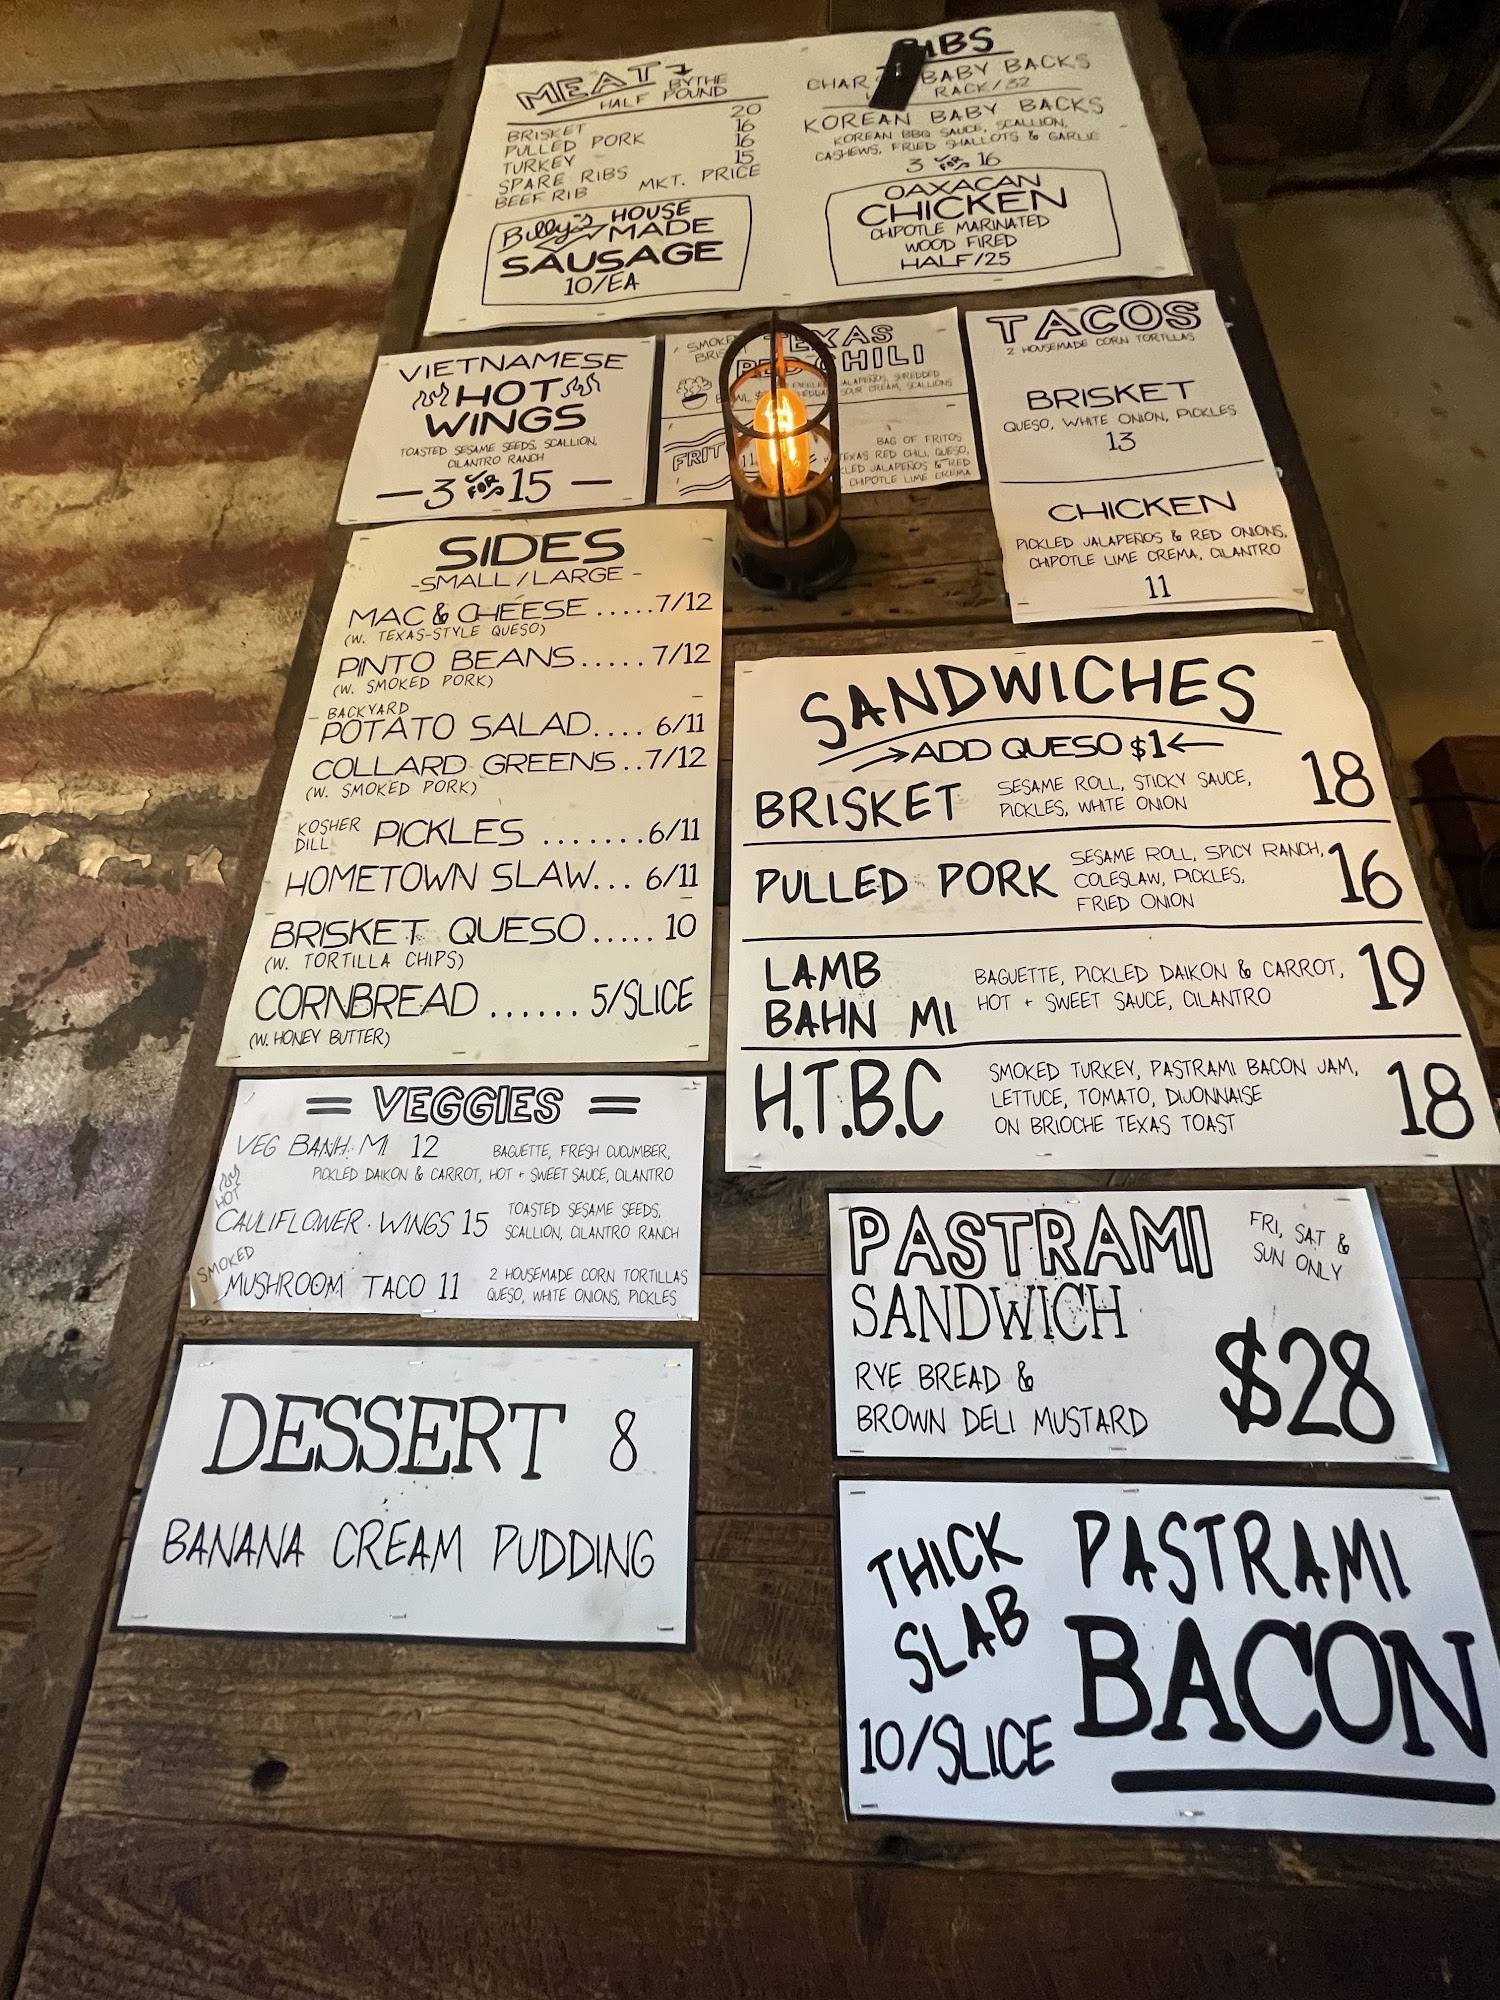 MEAT BY THE
HALF POUND
BRISKET 20
PULLED PORK 16
TURKEY 16
SPARE RIBS 15
BEEF RIB MKT. PRICE
Billy's HOUSE
MADE
SAUSAGE
10/EA
BABY BACKS
RACK/32
KOREAN BABY BACKS
KOREAN BBQ SAUCE, SCALLION,
CASHEWS, FRIED SHALLOTS & GARLIC
3 FOR 16
OAXACAN
CHICKEN
CHIPOTLE MARINATED
WOOD FIRED
HALF/25
VIETNAMESE
HOT
WINGS
TOASTED SESAME SEEDS, SCALLION,
CILANTRO RANCH
— 3 FOR 15 —
TEXAS
CHILI
JALAPEÑOS, SHREDDED
SOUR CREAM, SCALLIONS
BAG OF FRITOS
TEXAS RED CHILI, QUESO,
JALAPEÑOS & RED
CHIPOTLE LIME CREMA
TACOS
2 HOUSEMADE CORN TORTILLAS
BRISKET
QUESO, WHITE ONION, PICKLES
13
CHICKEN
PICKLED JALAPEÑOS & RED ONIONS,
CHIPOTLE LIME CREMA, CILANTRO
11
SIDES
-SMALL/LARGE-
MAC & CHEESE.....7/12
(W. TEXAS-STYLE QUESO)
PINTO BEANS.....7/12
(W. SMOKED PORK)
BACKYARD
POTATO SALAD.... 6/11
COLLARD GREENS..7/12
(W. SMOKED PORK)
KOSHER
DILL PICKLES .......6/11
HOMETOWN SLAW... 6/11
BRISKET QUESO..... 10
(W. TORTILLA CHIPS)
CORNBREAD ...... 5/SLICE
(W. HONEY BUTTER)
SANDWICHES
ADD QUESO $1
BRISKET SESAME ROLL, STICKY SAUCE,
PICKLES, WHITE ONION 18
PULLED PORK SESAME ROLL, SPICY RANCH,
COLESLAW, PICKLES,
FRIED ONION 16
LAMB
BAHN MI BAGUETTE, PICKLED DAIKON & CARROT,
HOT + SWEET SAUCE, CILANTRO 19
H.T.B.C SMOKED TURKEY, PASTRAMI BACON JAM,
LETTUCE, TOMATO, DIJONNAISE
ON BRIOCHE TEXAS TOAST 18
= VEGGIES =
VEG BANH MI 12 BAGUETTE, FRESH CUCUMBER,
PICKLED DAIKON & CARROT, HOT + SWEET SAUCE, CILANTRO
HOT
CAULIFLOWER WINGS 15 TOASTED SESAME SEEDS,
SCALLION, CILANTRO RANCH
SMOKED
MUSHROOM TACO 11 2 HOUSEMADE CORN TORTILLAS
QUESO, WHITE ONIONS, PICKLES
DESSERT 8
BANANA CREAM PUDDING
PASTRAMI FRI, SAT &
SUN ONLY
SANDWICH
RYE BREAD &
BROWN DELI MUSTARD
$28
THICK
SLAB
PASTRAMI
BACON
10/SLICE